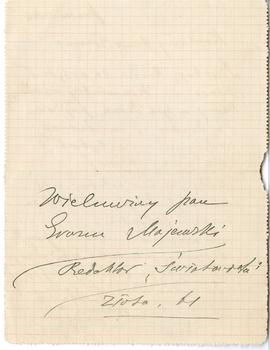 Wielmożny pan
Erazm Majewski
Redaktor „Światowita”
Złota, 61